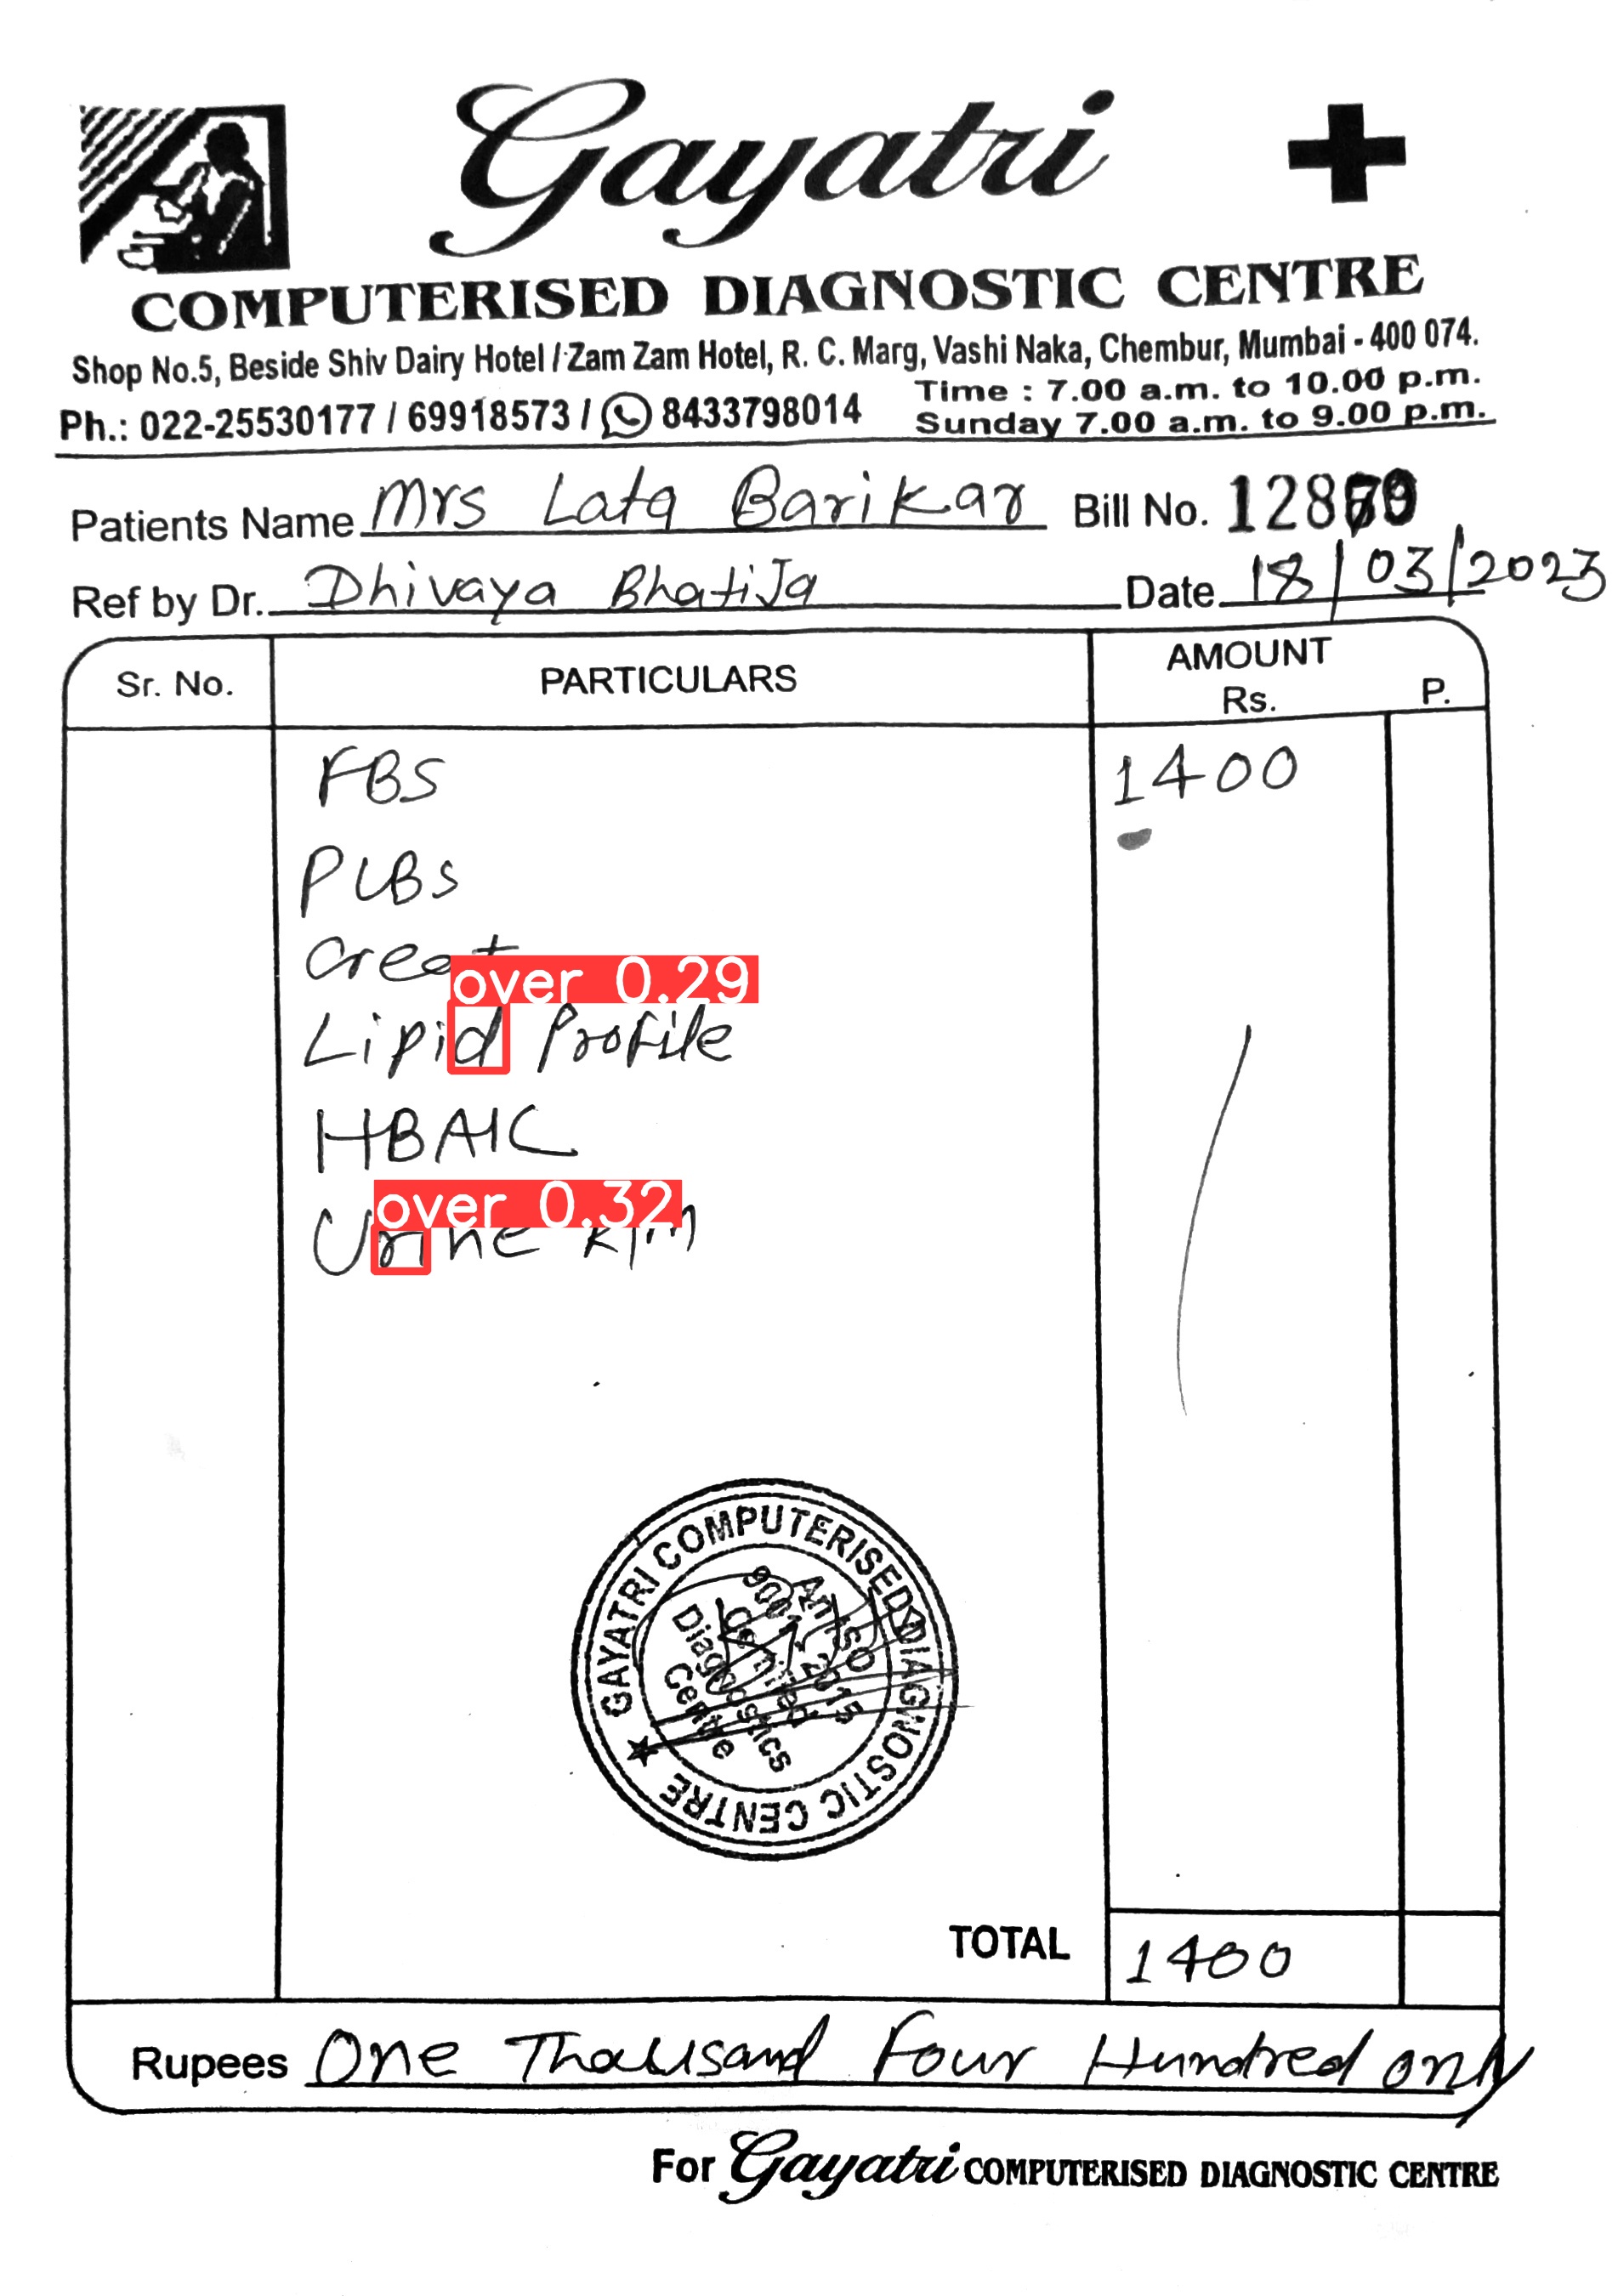 Gayatri
COMPUTERISED DIAGNOSTIC CENTRE
Shop No.5, Beside Shiv Dairy Hotel / Zam Zam Hotel, R. C. Marg, Vashi Naka, Chembur, Mumbai - 400 074.
Time : 7.00 a.m. to 10.00 p.m.
Ph.: 022-25530177 / 69918573 / 8433798014
Sunday 7.00 a.m. to 9.00 p.m.
Patients Name Mrs Lata Barikar Bill No.
Ref by Dr. Dhivaya Bhatija Date 18/03/2023
Sr. No. PARTICULARS AMOUNT Rs. P.
FBS 1400
PLBS
Creat
over 0.29
Lipid Profile
HBAIC
over 0.32
Urine
GAYATRI COMPUTERISED DIAGNOSTIC CENTRE
An ISO
9001:2015
Certified
Diagnostics
Centre
TOTAL 1400
Rupees One Thousand Four Hundred only
For Gayatri COMPUTERISED DIAGNOSTIC CENTRE